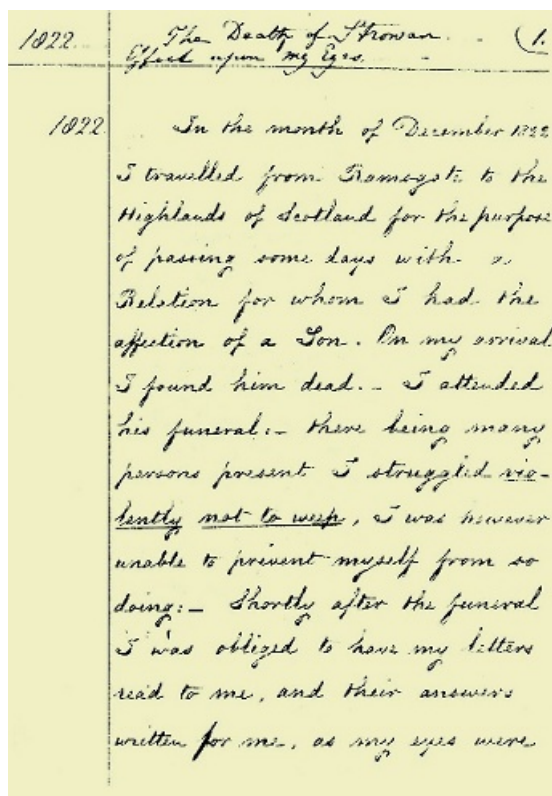 1822. The Death of Strowan. - (1.
Effect upon my Eyes. -
1822. In the month of December 1822
I travelled from Ramsgate to the
Highlands of Scotland for the purpose
of passing some days with a
Relation for whom I had the
affection of a Son. On my arrival
I found him dead. - I attended
his funeral: - there being many
persons present I struggled vio-
lently not to weep, I was however
unable to prevent myself from so
doing: - Shortly after the funeral
I was obliged to have my letters
read to me, and their answers
written for me, as my eyes were